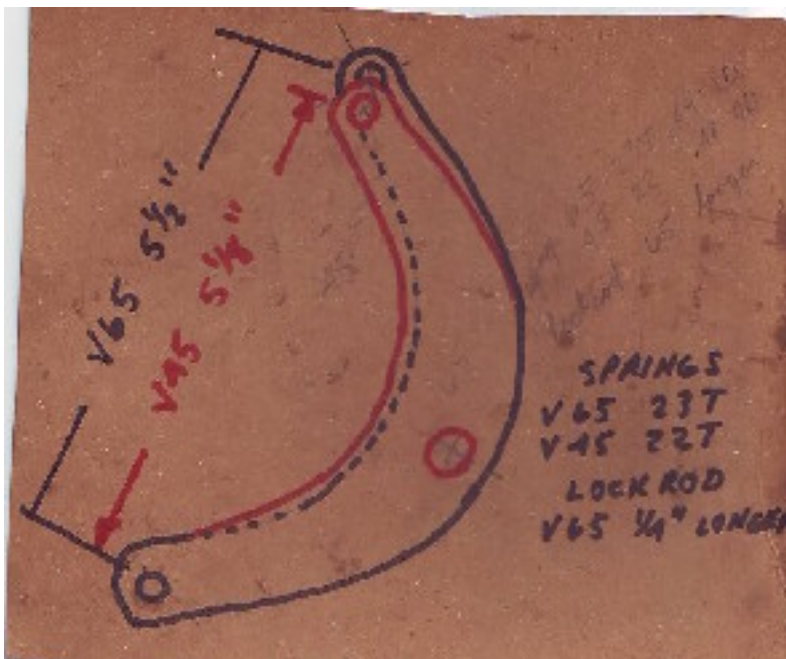 V65 5½"
V45 5⅛"
65 longer
SPRINGS
V65 23T
V45 22T
LOCK ROD
V65 ¼" LONGER